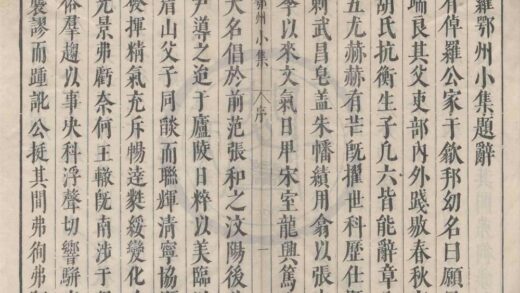 羅鄂州小集題辭
有倬羅公家于歙邦幼名曰願
端良其父吏部內外踐敭春秋
胡氏抗衡生子凡六皆能辭章
五尤赫赫有芒旣擢世科歷仕
刺武昌皂蓋朱幡績用翕以張
李以來文氣日卑宋室龍興篤
鄂州小集 序 一
大名倡於前范張和之汶陽後
尹導之迨于廬陵日粹以美臨
眉山父子同燄而聯輝清寧協
發揮精氣充斥暢達綏變化
光景弗虧奈何王轍旣南涉于
俗羣趨以事央科浮聲切響駢
襲謬而踵訛公挺其間弗徇弗